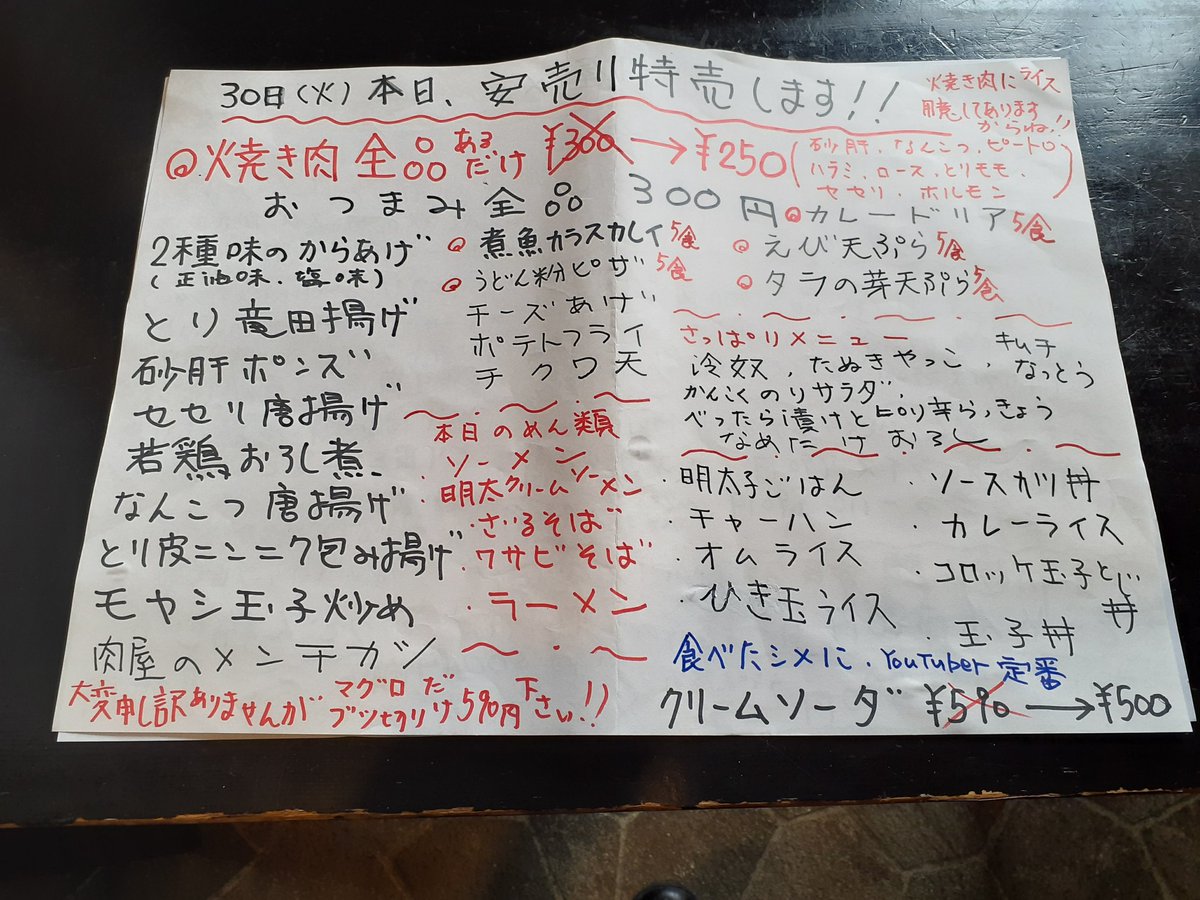 30日(火)本日、安売り特売します!!
焼き肉にライス
用意してあります
からね!!
@焼き肉全品あるだけ ¥300→¥250
(砂肝、なんこつ、ピートロ
ハラミ、ロース、とりモモ、
セセリ、ホルモン)
おつまみ全品 300円
2種味のからあげ
(正油味、塩味)
とり竜田揚げ
砂肝ポンズ
セセリ唐揚げ
若鶏おろし煮
なんこつ唐揚げ
とり皮ニンニク包み揚げ
モヤシ玉子炒め
肉屋のメンチカツ
煮魚カラスカレイ5食
うどん粉ピザ5食
チーズあげ
ポテトフライ
チクワ天
本日のめん類
ソーメン
・明太クリームソーメン
・ざるそば
・ワサビそば
・ラーメン
カレードリア5食
えび天ぷら5食
タラの芽天ぷら5食
さっぱりメニュー
冷奴、たぬきやっこ、キムチなっとう
かんこくのりサラダ、
べったら漬けとピリ辛らっきょう
なめたけおろし
・明太子ごはん
・チャーハン
・オムライス
・ひき玉ライス
・ソースカツ丼
・カレーライス
・コロッケ玉子とじ丼
・玉子丼
食べたシメに、YouTuber定番
クリームソーダ ¥590→¥500
大変申し訳ありませんが マグロブツ切りだけ590円下さい!!